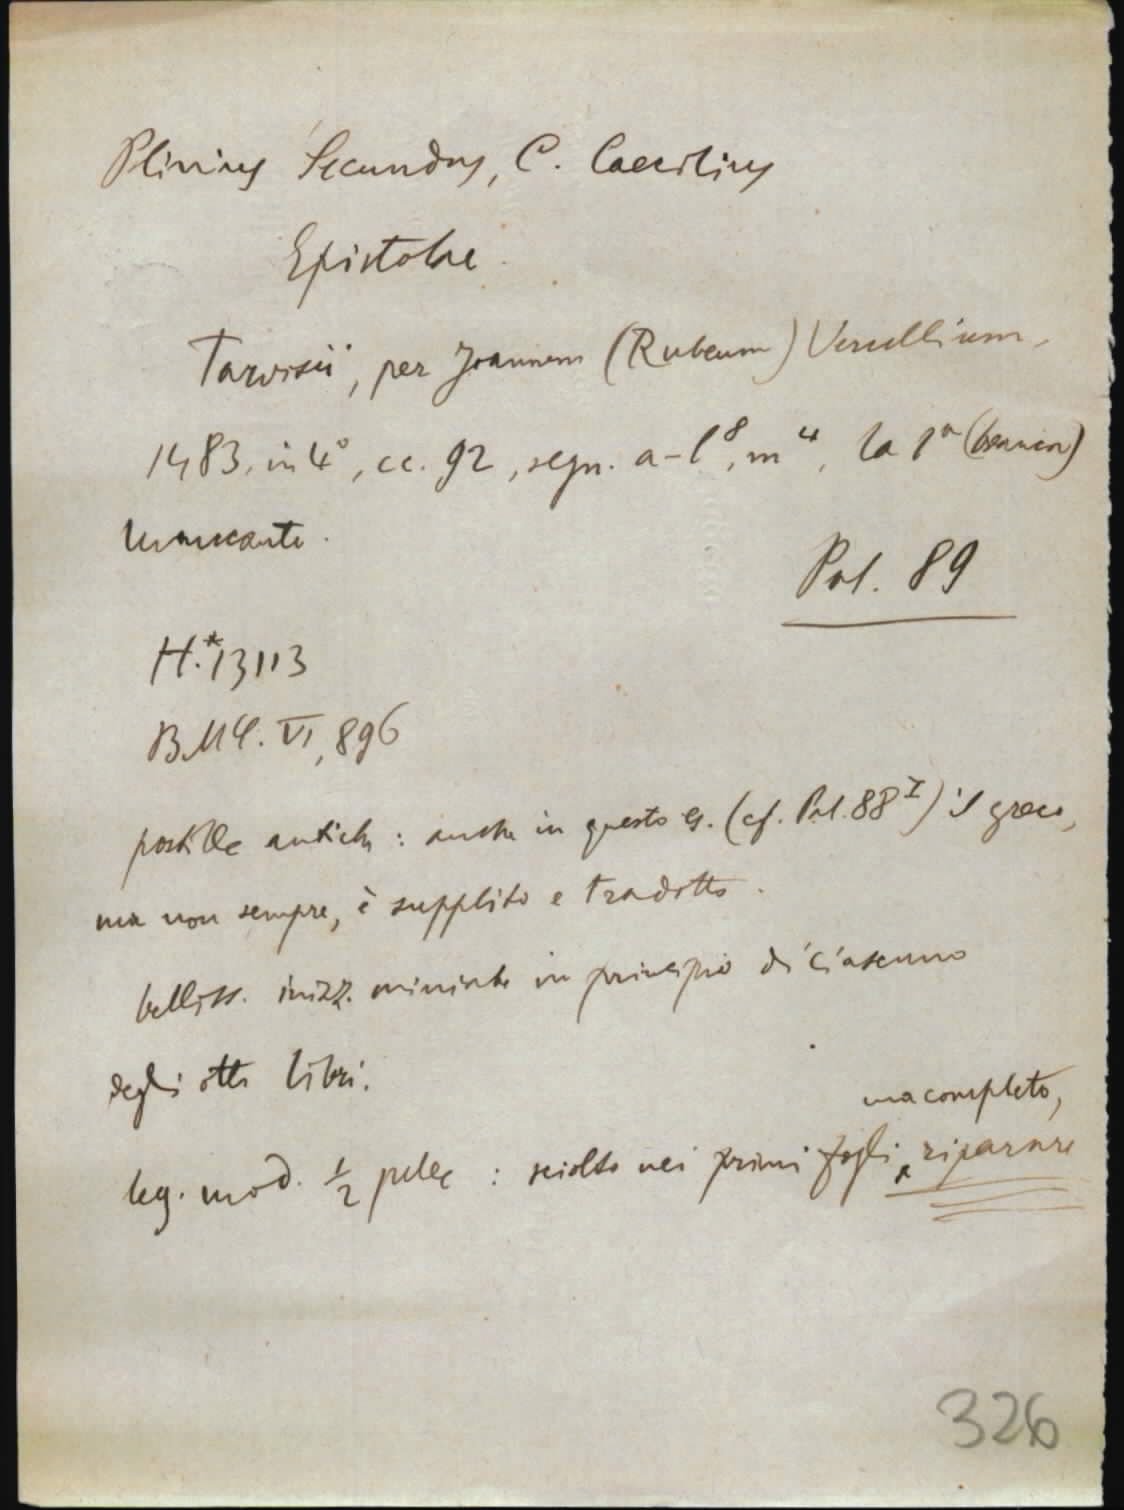 Plinius Secundus, C. Caecilius
Epistolae.
Tarvisii, per Joannem (Rubeum) Vercellium,
1483, in 4°, cc. 92, segn. a-l⁸, m⁴, la 1ª (bianca)
mancante.
Pal. 89
H.*13113
BMC. VI, 896
postille antiche: anche in questo es. (cf. Pal. 88 I) il greco,
ma non sempre, è supplito e tradotto.
belliss. inizz. miniate in principio di ciascuno
degli otto libri.
ma completo,
leg. mod. ½ pelle: sciolto nei primi fogli riparare
326